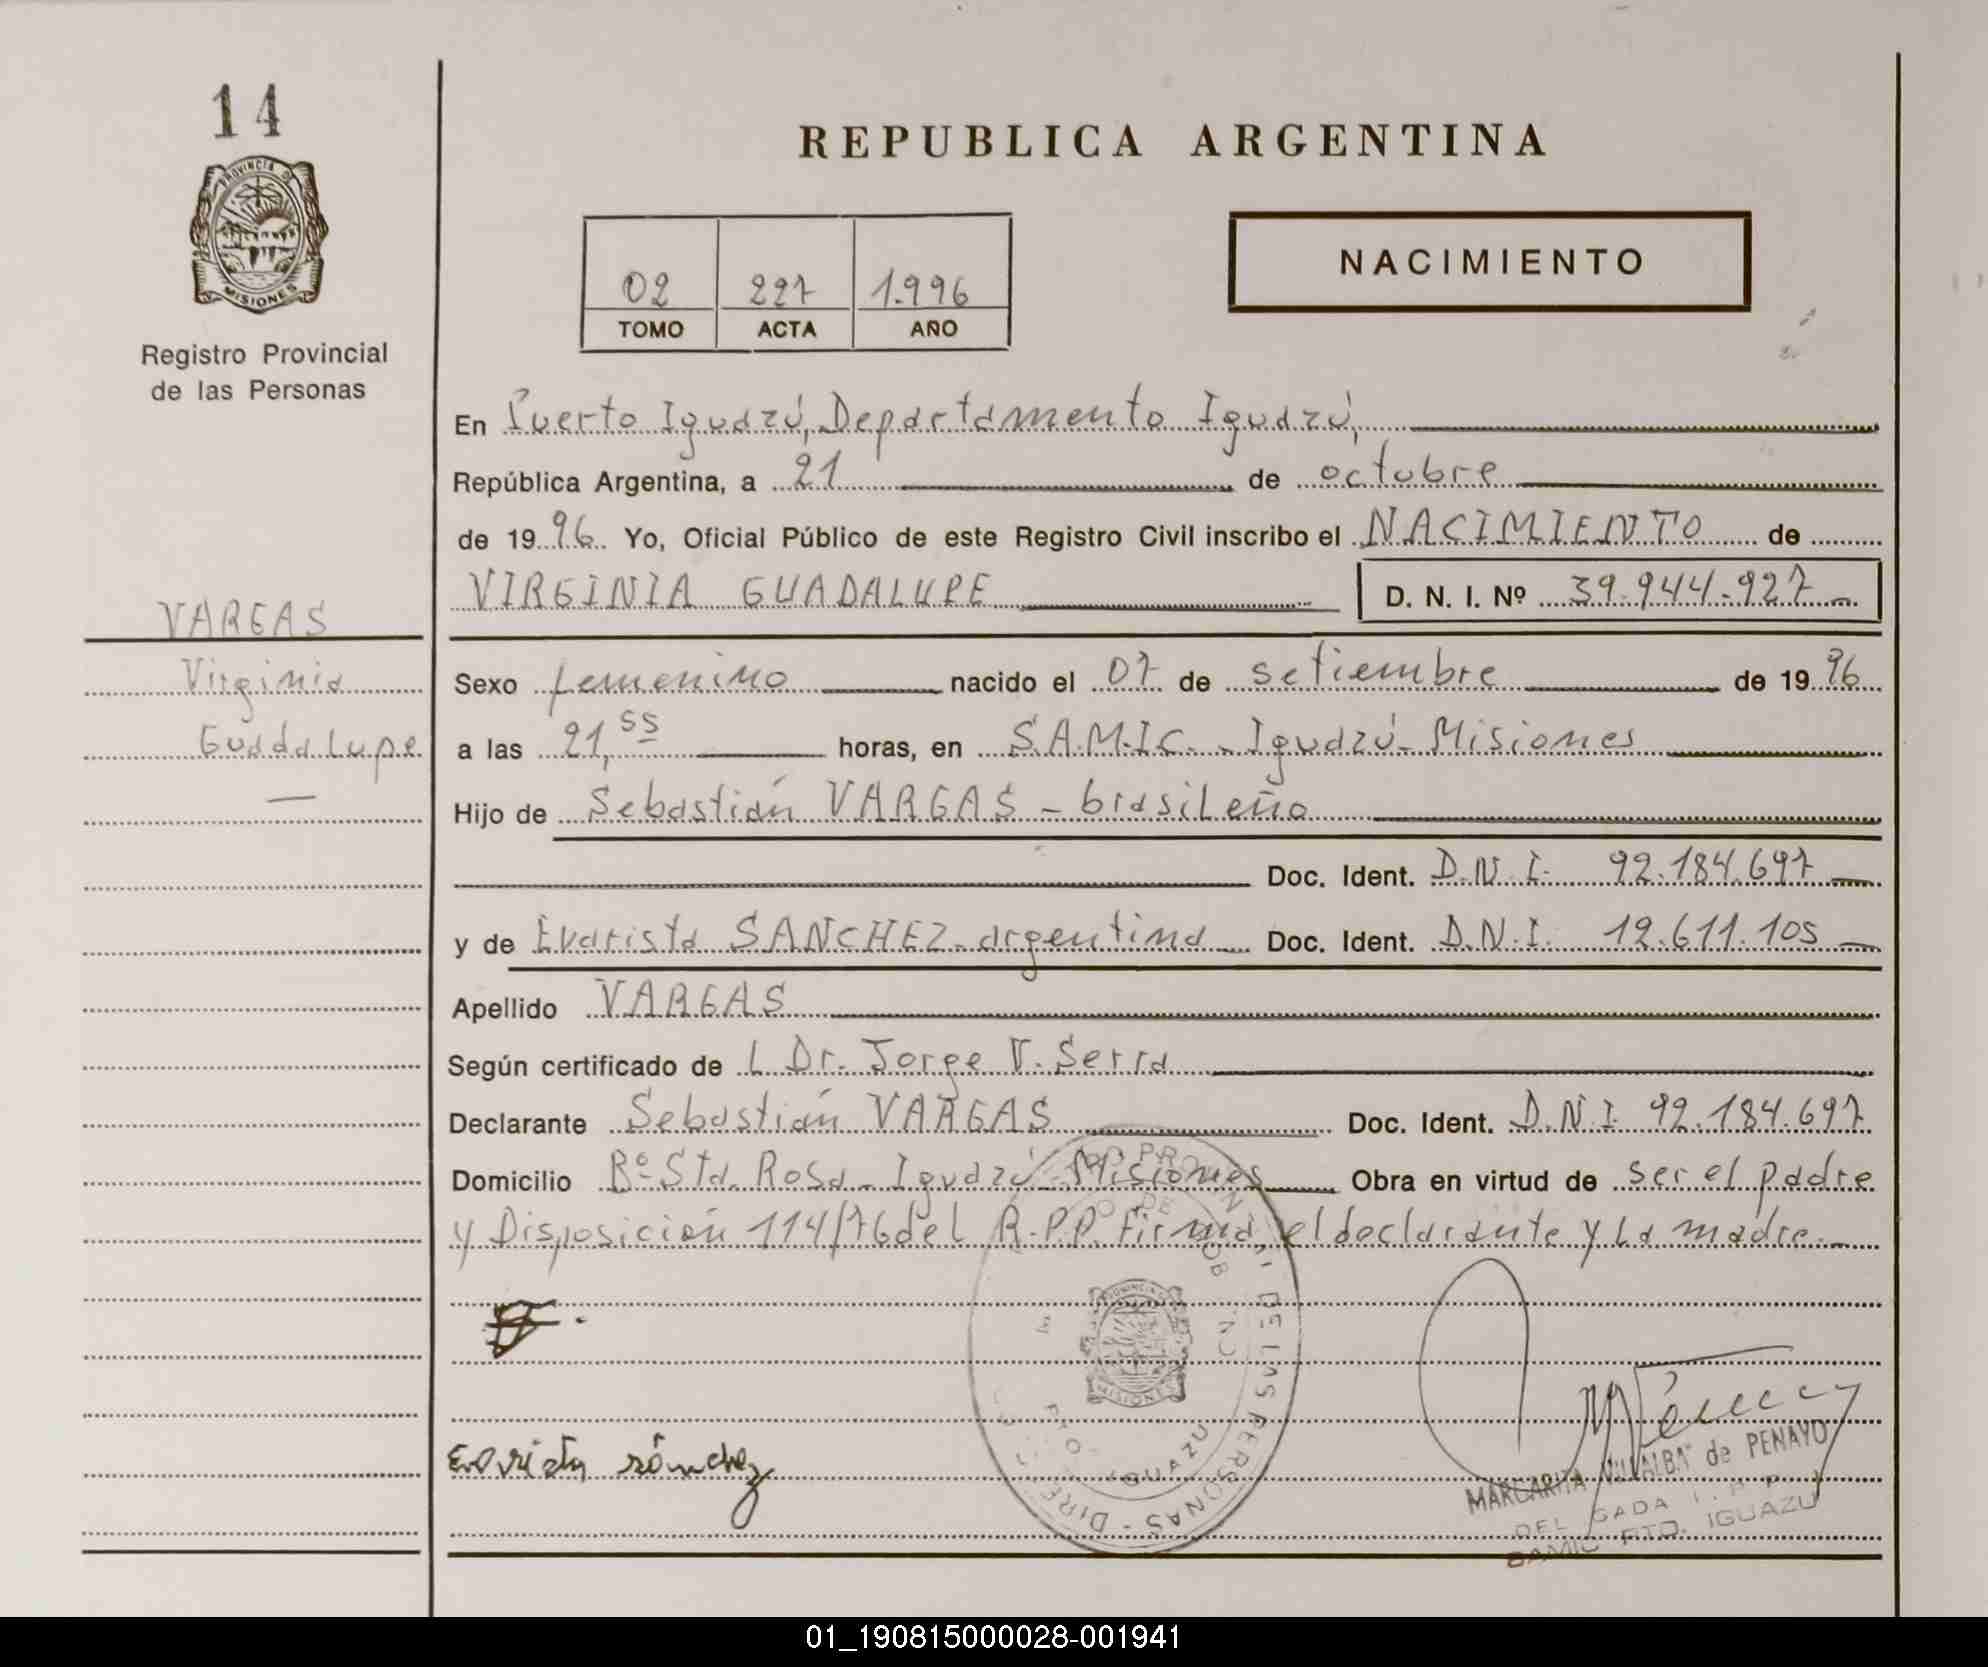 14
PROVINCIA DE
MISIONES
Registro Provincial
de las Personas
REPUBLICA ARGENTINA
02 227 1.996
TOMO ACTA AÑO
NACIMIENTO
En Puerto Iguazú, Departamento Iguazú,
República Argentina, a 21 de octubre
de 1996 Yo, Oficial Público de este Registro Civil inscribo el NACIMIENTO de
VIRGINIA GUADALUPE D. N. I. Nº 39.944.927
VARGAS
Virginia
Guadalupe
Sexo femenino nacido el 07 de setiembre de 1996
a las 21,55 horas, en S.A.M.I.C. - Iguazú - Misiones
Hijo de Sebastián VARGAS - brasileño
Doc. Ident. D.N.I. 92.184.697
y de Evarista SANCHEZ - argentina Doc. Ident. D.N.I. 12.611.105
Apellido VARGAS
Según certificado de L Dr. Jorge V. Serra
Declarante Sebastián VARGAS Doc. Ident. D.N.I. 92.184.697
Domicilio Bº Sta. Rosa - Iguazú - Misiones Obra en virtud de ser el padre
y Disposición 114/76 del R.P.P. Firma, el declarante y La madre.-
DE LAS PERSONAS - DIRE
PROVINCIA
MISIONES
PTO. IGUAZU
Evarista sánchez
MARGARITA VILLALBA de PENAYO
DELEGADA R.P.P.
SAMIC PTO. IGUAZU
01_190815000028-001941